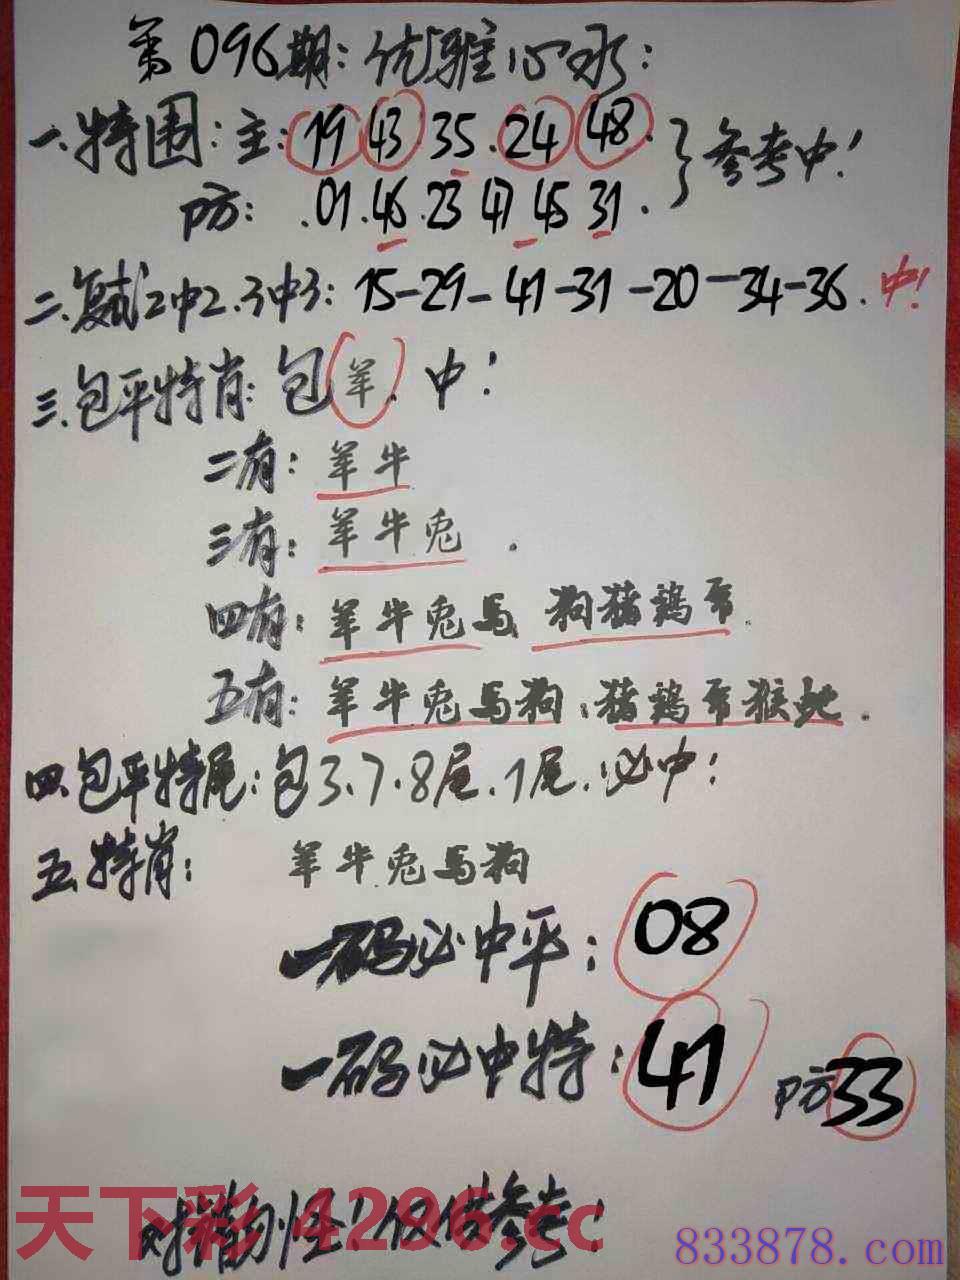 第096期：优雅心水：
一.特围：主：19 43 35.24 48.}参考中！
防：.01.46.23 47 45 31.
二.复试2中2.3中3：15-29-41-31-20-34-36.中！
三.包平特肖：包羊.中！
二有：羊牛
三有：羊牛兔.
四有：羊牛兔馬 狗猪鷄
五有：羊牛兔馬狗：猪鷄 猴蛇.
四.包平特尾：包3.7.8尾.1尾.必中！
五.特肖：羊牛兔馬狗
一码必中平：08
一码必中特：41 防33
天下彩 4296.cc
对错勿怪！仅供参考！
833878.com